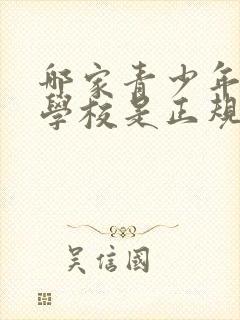 哪家青少年
學校是正規
吳信國